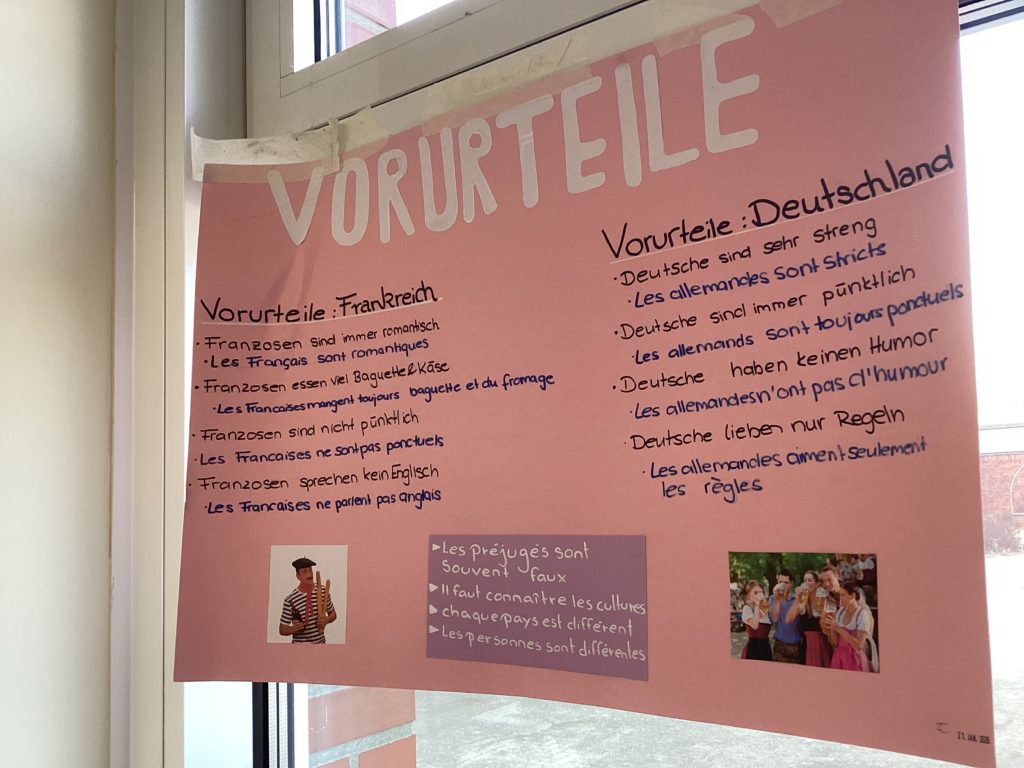 VORURTEILE
Vorurteile : Frankreich
· Franzosen sind immer romantisch
· Les Français sont romantiques
· Franzosen essen viel Baguette & Käse
· Les Francaises mangent toujours baguette et du fromage
· Franzosen sind nicht pünktlich
· Les Francaises ne sont pas ponctuels
· Franzosen sprechen kein Englisch
· Les Francaises ne parlent pas anglais
Vorurteile : Deutschland
· Deutsche sind sehr streng
· Les allemandes sont stricts
· Deutsche sind immer pünktlich
· Les allemands sont toujours ponctuels
· Deutsche haben keinen Humor
· Les allemandes n'ont pas d'humour
· Deutsche lieben nur Regeln
· Les allemandes aiment seulement
les règles
► Les préjugés sont
souvent faux
► Il faut connaître les cultures
► chaque pays est différent
► Les personnes sont différentes
21. JAN.